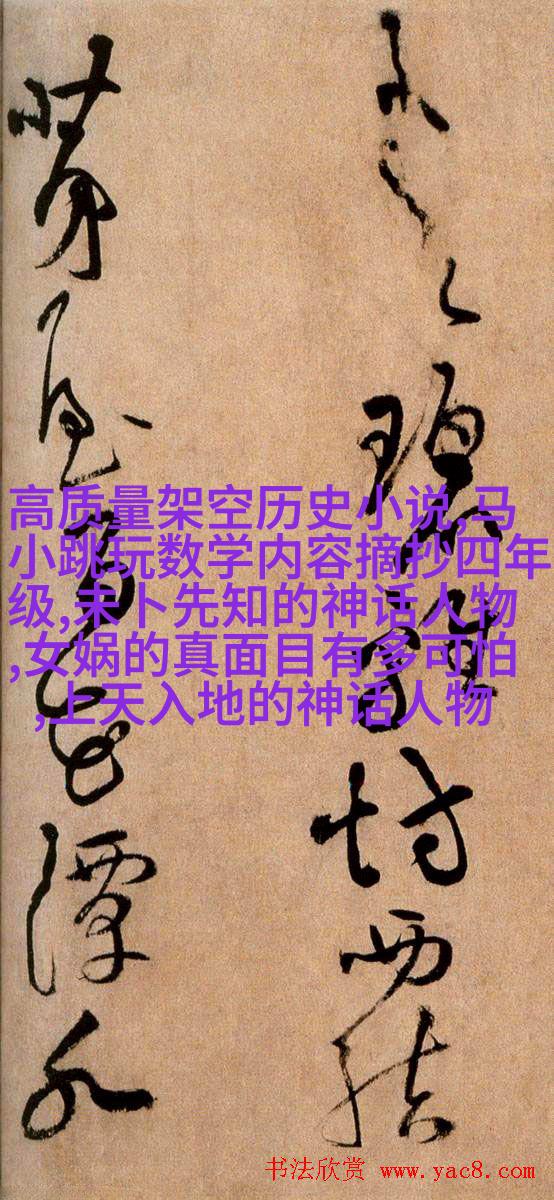 碧鸡坊西结
茅屋百花潭水
高质量架空历史小说,马
小跳玩数学内容摘抄四年
级,未卜先知的神话人物
,女娲的真面目有多可怕
,上天入地的神话人物
书法欣赏 www.yac8.com